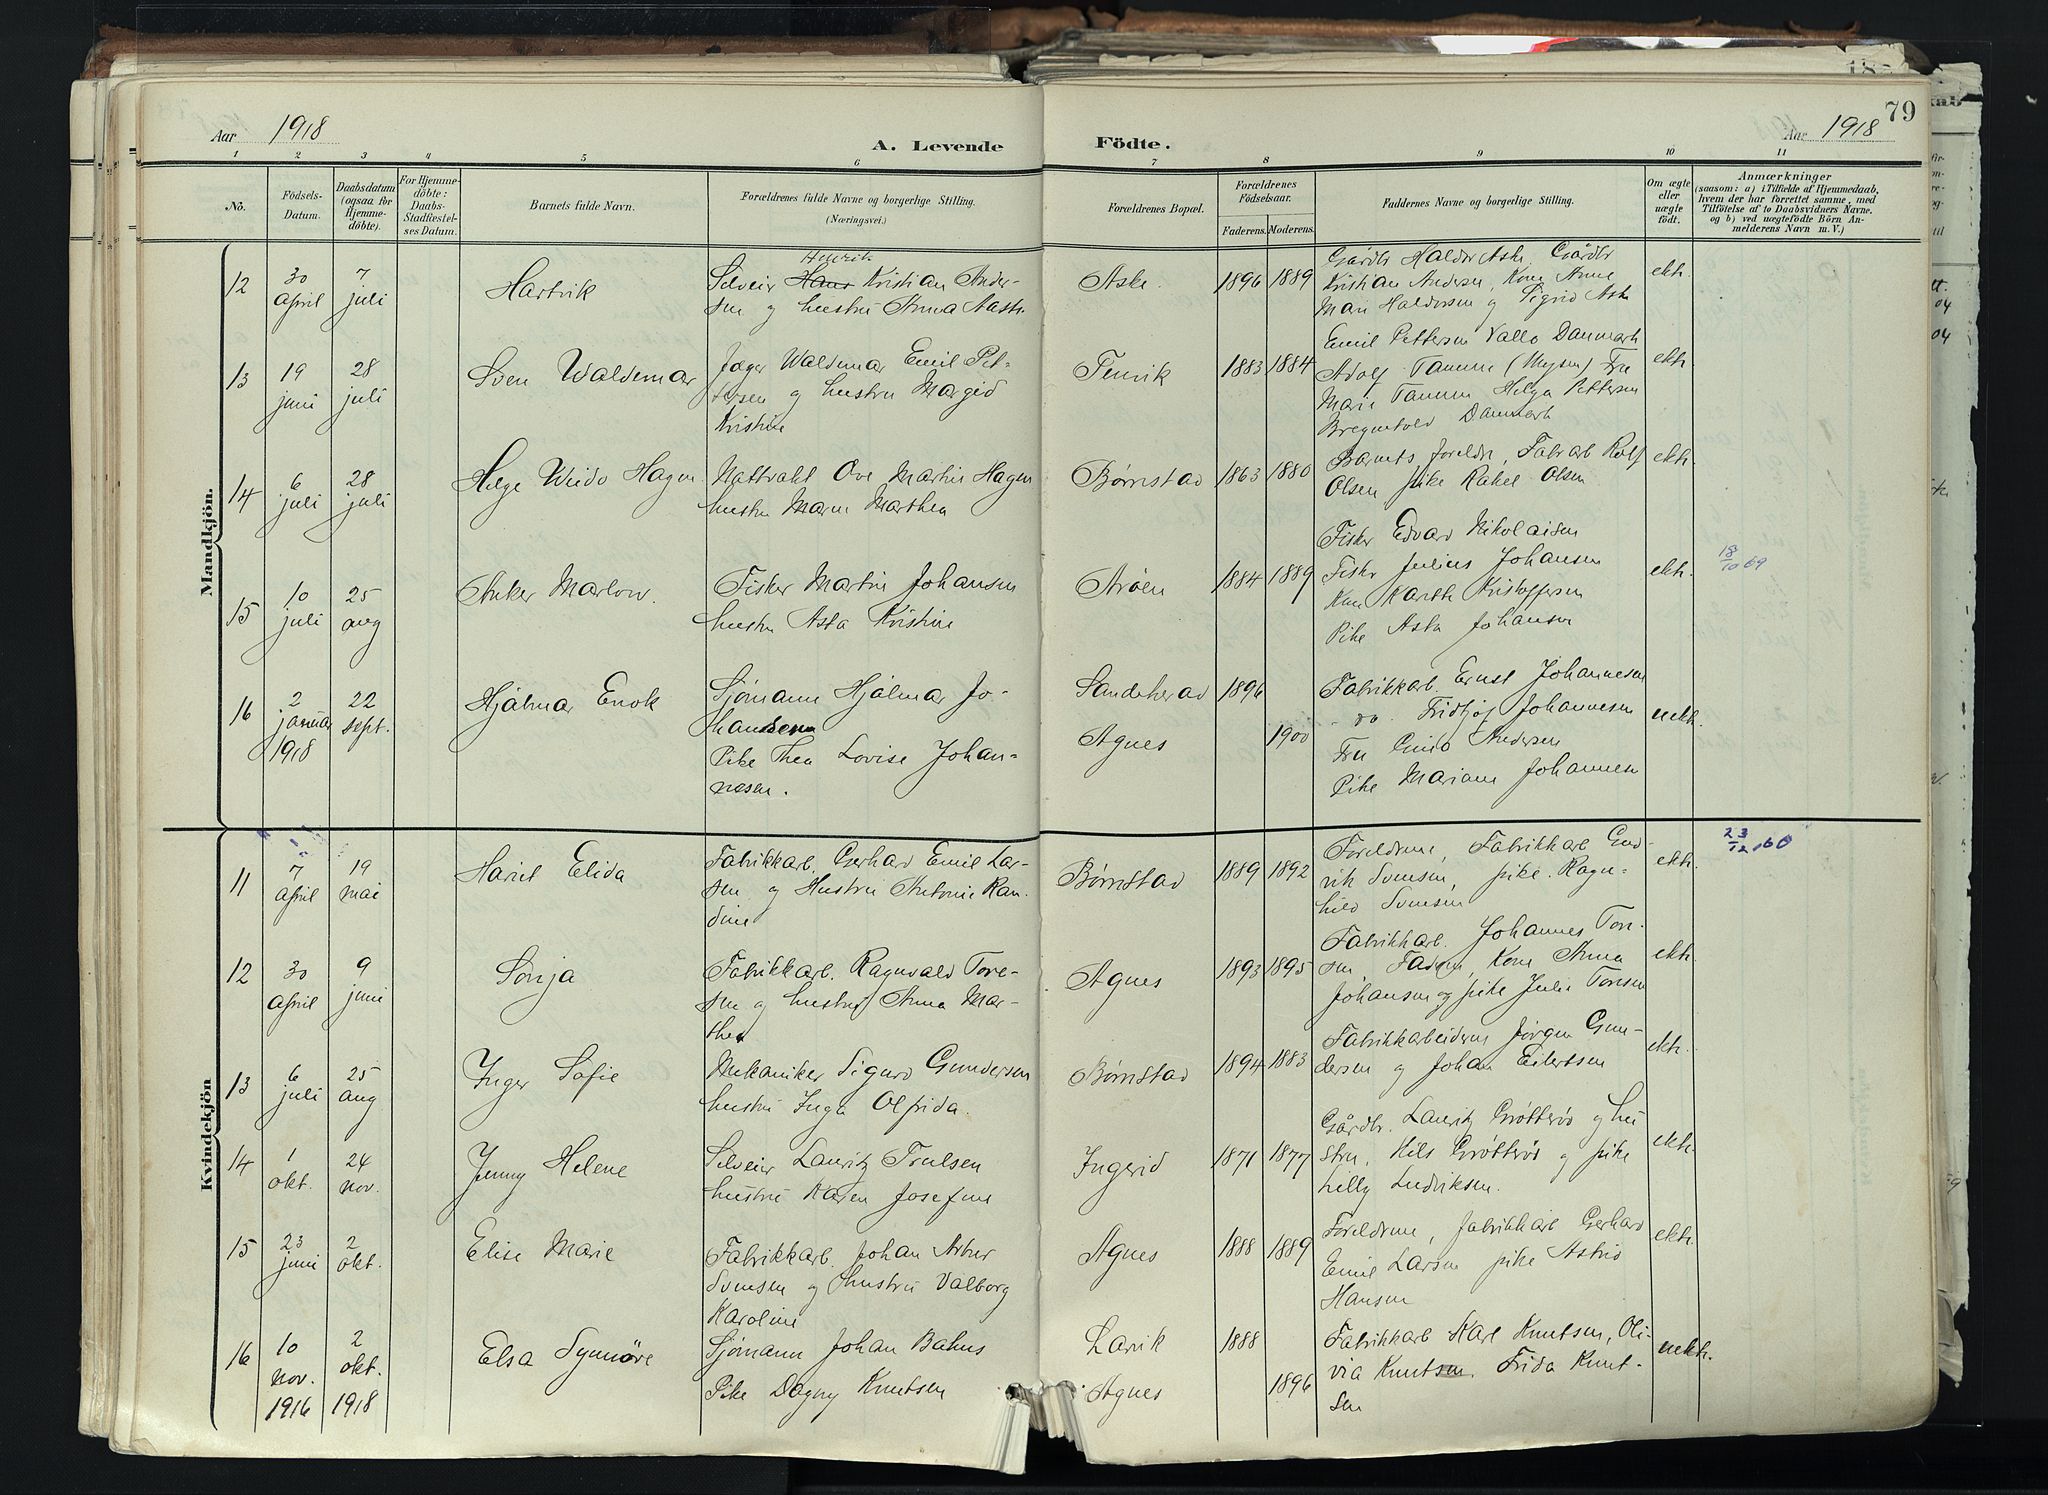 79
Aar 1918
A. Levende Födte.
Aar 1918
1 2 3 4 5 6 7 8 9 10 11
No.
Födsels-
Datum.
Daabsdatum
(ogsaa for
Hjemme-
döbte).
For Hjemme-
döbte:
Daabs-
Stadfæstel-
ses Datum.
Barnets fulde Navn.
Forældrenes fulde Navne og borgerlige Stilling.
(Næringsvei.)
Forældrenes Bopæl.
Forældrenes
Födselsaar.
Faderens. Moderens.
Faddernes Navne og borgerlige Stilling.
Om ægte
eller
uægte
födt.
Anmærkninger
(saasom: a) i Tilfælde af Hjemmedaab,
hvem der har forrettet samme, med
Tilföielse af to Daabsvidners Navne.
og b) ved uægtefödte Börn An-
melderens Navn m. V.)
Mandkjön.
12
30
april
7
juli
Hartvik
Henrik
Selveier Hans Kristian Ander-
sen og hustru Anna Aask.
Aske.
1896 1889
Gårdbr Haldor Aske Gårdbr
Kristian Andersen, Kone Anne
Mari Haldorsen og Sigrid Aske
ekte
13
19
juni
28
juli
Sven Waldemar
Jæger Waldemar Emil Pet-
tersen og hustru Margid
Kristine
Fenvik
1883 1884
Emil Pettersen Vallo Danmark
Adolf Tamm (Mysen) Fru
Marie Tamm Helga Pettersen
Bregentved Danmark
ekte
14
6
juli
28
juli
Helge Wiido Hagen
Nattvakt Ove Martin Hagen
hustru Maren Marthea
Børnstad
1863 1880
Barnets foreldre, Fabrarb Rolf
Olsen pike Rakel Olsen
ekte
15
10
juli
25
aug
Anker Marlow.
Fisker Martin Johansen
hustru Asta Kristine
Strøen
1884 1889
Fisker Edvard Nikolaisen
Fisker Julius Johansen
Kone Karethe Kristoffersen
Pike Asta Johansen
ekte.
18/10 69
16
2
januar
1918
22
sept.
Hjalmar Enok
Sjømann Hjalmar Jo-
hansen
Pike Thea Lovise Johan-
nesen.
Sandeherad
Agnes
1896
1900
Fabrikkarb. Ernst Johannesen
- do. Fridtjof Johannesen
Fru Andersen
Pike Mariane Johannesen
uekte.
Kvindekjön
11
7
april
19
mai
Hariet Elida
Fabrikkarb. Gerhard Emil Lar-
sen og Hustru Antonie Ran-
dine
Børnstad
1889 1892
Foreldrene, Fabrikkarb Gud-
vik Svensen, pike Ragn-
hild Svensen
ekte
23/12 60
12
30
april
9
juni
Sonja
Fabrikkarb. Ragnvald Tore-
sen og hustru Anna Mar-
thea
Agnes
1893 1895
Fabrikkarb. Johannes Tore-
sen, Faderen, Kone Anna
Johansen og pike Julie Toresen
ekte
13
6
juli
25
aug
Inger Sofie
Mekaniker Sigurd Gundersen
hustru Inga Olfrida.
Børnstad
1894 1883
Fabrikkarbeiderne Jørgen Gun-
dersen og Johan Eilertsen
ekte.
14
1
okt.
24
nov.
Jenny Helene
Selveier Lauritz Trulsen
hustru Karen Josefine
Ingerid
1871 1877
Gårdbr. Lauritz Grøtterød og hu-
stru, Nils Grøtterød og pike
Lilly Ludviksen.
ekte.
15
23
juni
2
okt.
Elise Marie
Fabrikkarb. Johan Artur
Svensen og Hustru Valborg
Karoline
Agnes
1888 1889
Foreldrene, fabrikkarb Gerhard
Emil Larsen pike Astrid
Hansen
ekte.
16
10
nov.
1916
2
okt.
1918
Elsa Synnöve
Sjömann Johan Bahus
Pike Dagny Knutsen
Larvik
Agnes
1888
1896
Fabrikkarb Karl Knutsen, Oli-
via Knutsen. Frida Knut-
sen
uekte.